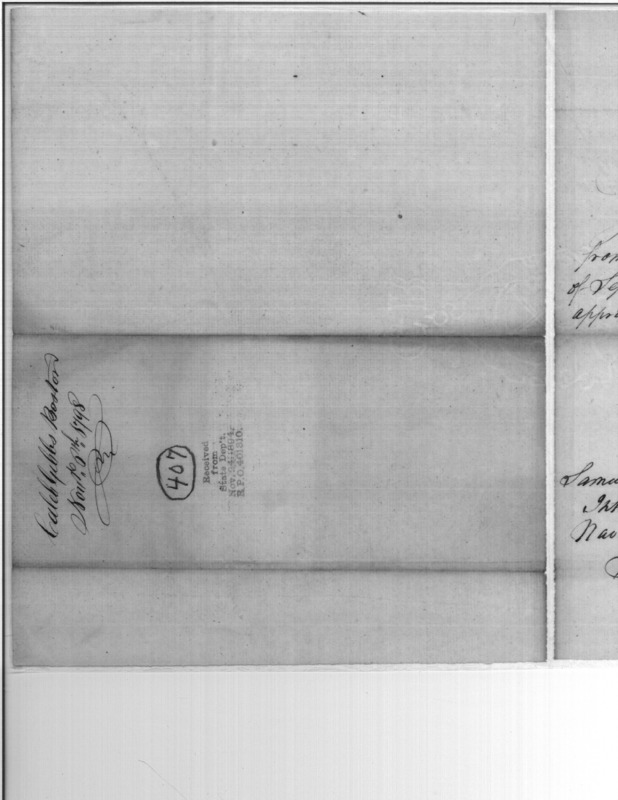 Caleb Gibbs Boston
Nov
1798
407
Received
from
State Dep't.
Nov. 24, 1894.
R.P.O. 401310.
from
of
appro
Samu
Nav